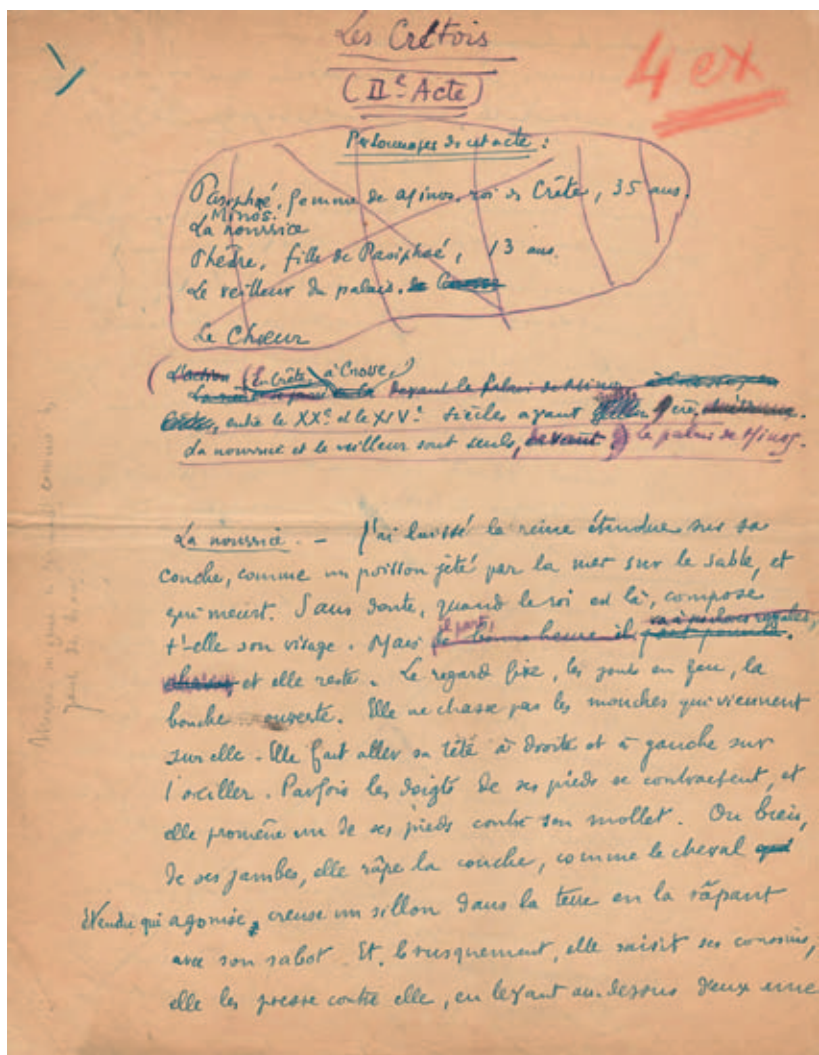 Les Crétois
(IIe Acte)
4 ex
Personnages de cet acte :
Pasiphaé, femme de Minos, roi de Crète, 35 ans.
Minos.
La nourrice
Phèdre, fille de Pasiphaé, 13 ans.
Le veilleur du palais. de
Le Chœur
(L'action (En Crète, à Cnosse,)
devant le palais de Minos
entre le XXe et le XIVe siècles avant ère,
La nourrice et le veilleur sont seuls, devant le palais de Minos.
La nourrice. – J'ai laissé la reine étendue sur sa
couche, comme un poisson jeté par la mer sur le sable, et
qui meurt. Sans doute, quand le roi est là, compose
t'-elle son visage. Mais de bonne heure il
il part,
et elle reste. Le regard fixe, les joues en feu, la
bouche ouverte. Elle ne chasse pas les mouches qui viennent
sur elle. Elle fait aller sa tête à droite et à gauche sur
l'oreiller. Parfois les doigts de ses pieds se contractent, et
elle promène un de ses pieds contre son mollet. Ou bien,
de ses jambes, elle râpe la couche, comme le cheval qui
étendu qui agonise, creuse un sillon dans la terre en la râpant
avec son sabot. Et, brusquement, elle saisit ses coussins,
elle les presse contre elle, en levant au-dessus d'eux une